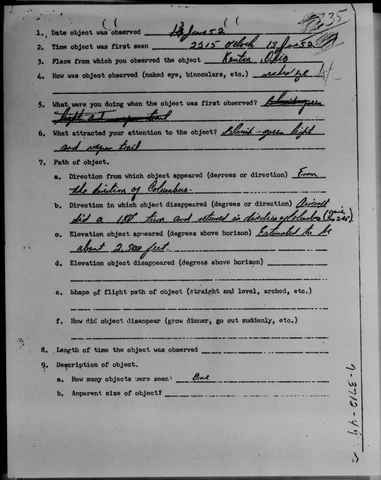 1335
1. Date object was observed 13 June 52
2. Time object was first seen 2215 o'clock 13 Jun 52
3. Place from which you observed the object Kenton, Ohio
4. How was object observed (naked eye, binoculars, etc.) naked eye
5. What were you doing when the object was first observed? Bluish-green
light and vapor trail
6. What attracted your attention to the object? Bluish-green light
and vapor trail
7. Path of object.
a. Direction from which object appeared (degrees or direction) From
the direction of Columbus.
b. Direction in which object disappeared (degrees or direction) Aircraft
did a 180° turn and returned in direction of Columbus
c. Elevation object appeared (degrees above horizon) Estimated to be
about 2,500 feet.
d. Elevation object disappeared (degrees above horizon)
e. Shape of flight path of object (straight and level, arched, etc.)
f. How did object disappear (grow dimmer, go out suddenly, etc.)
8. Length of time the object was observed
9. Description of object.
a. How many objects were seen: One
b. Apparent size of object?
7-3712-44